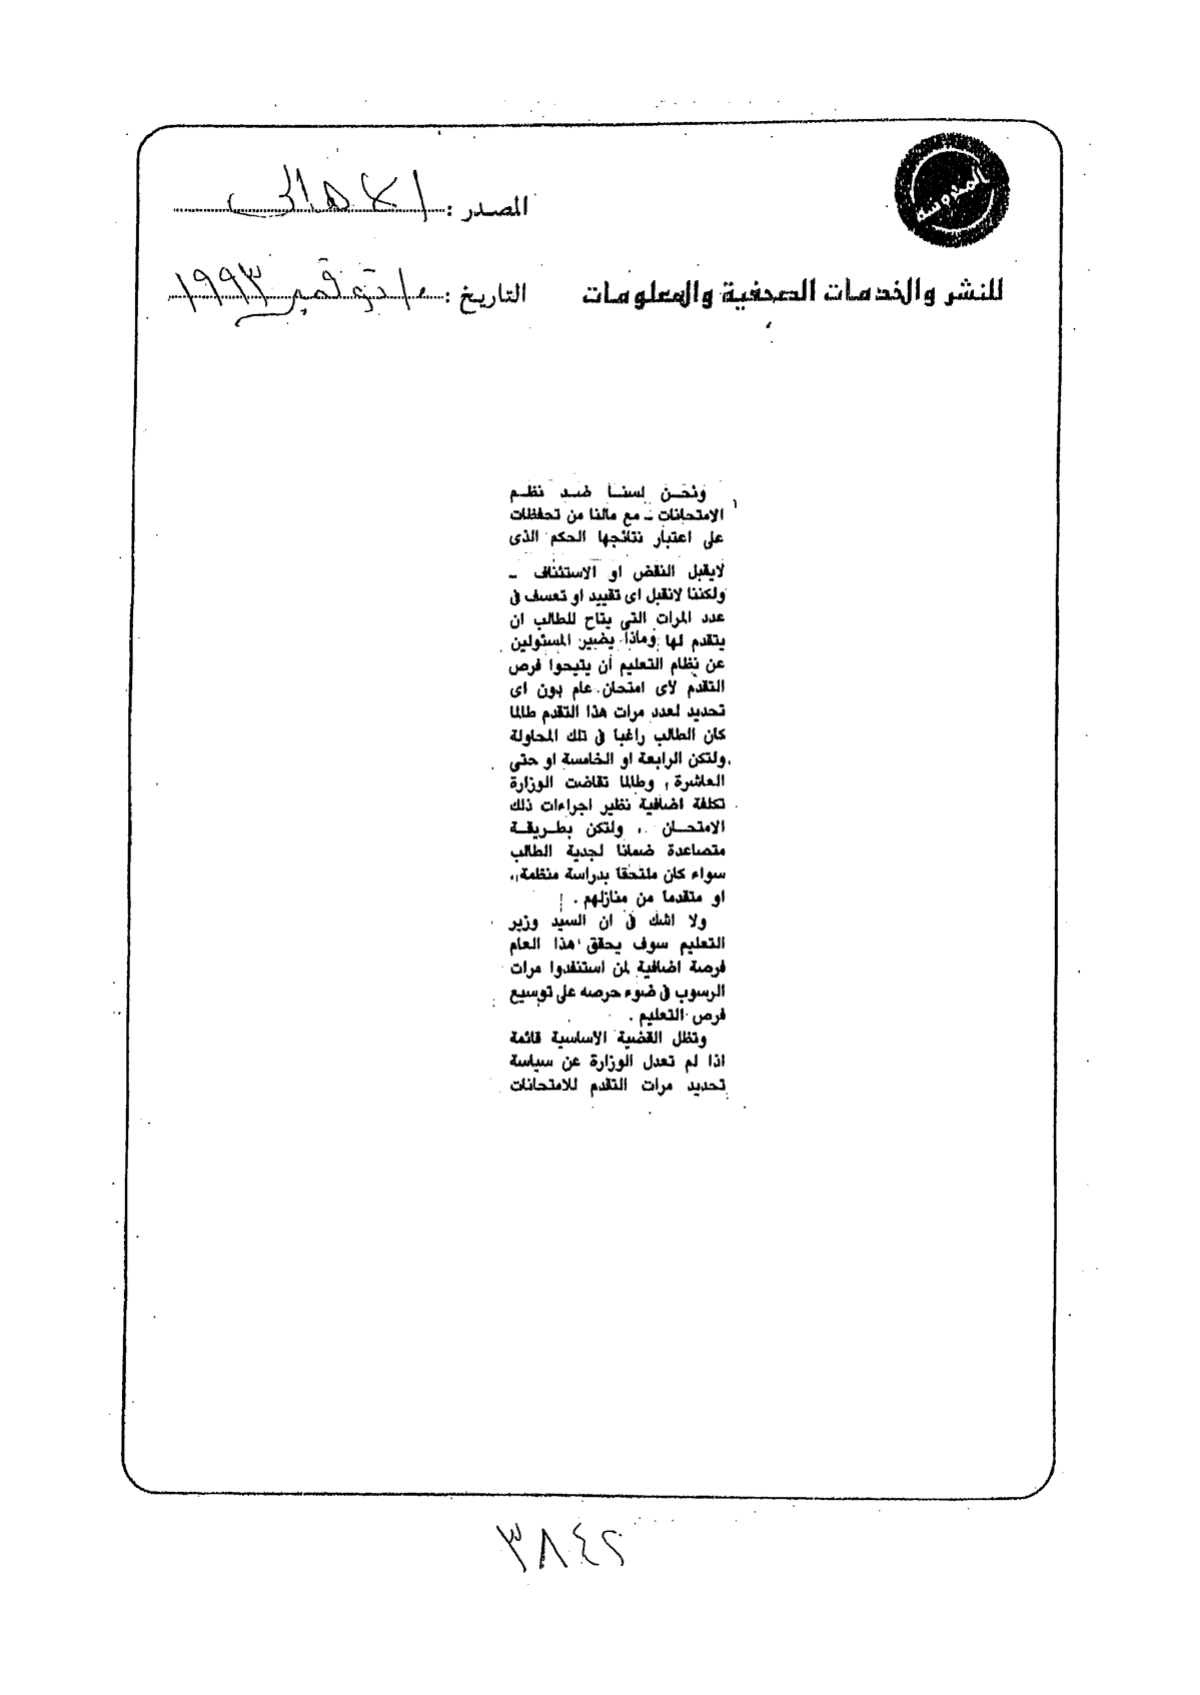 المدوسة
المصدر : الاهالى
للنشر والخدمات الصحفية والمعلومات
التاريخ : ١٠ نوفمبر ١٩٩٣
ونحن لسنا ضد نظم
الامتحانات - مع مالنا من تحفظات
على اعتبار نتائجها الحكم الذى
لايقبل النقض او الاستئناف -
ولكننا لانقبل اى تقييد او تعسف فى
عدد المرات التى يتاح للطالب ان
يتقدم لها وماذا يضير المسئولين
عن نظام التعليم أن يتيحوا فرص
التقدم لاى امتحان عام بون اى
تحديد لعدد مرات هذا التقدم طالما
كان الطالب راغبا فى تلك المحاولة
ولتكن الرابعة او الخامسة او حتى
العاشرة ، وطالما تقاضت الوزارة
تكلفة اضافية نظير اجراءات ذلك
الامتحـان ، ولتكن بطريقـة
متصاعدة ضمانا لجدية الطالب
سواء كان ملتحقا بدراسة منظمة ،
او متقدما من منازلهم .
ولا اشك فى ان السيد وزير
التعليم سوف يحقق هذا العام
فرصة اضافية لمن استنفدوا مرات
الرسوب فى ضوء حرصه على توسيع
فرص التعليم .
وتظل القضية الاساسية قائمة
اذا لم تعدل الوزارة عن سياسة
تحديد مرات التقدم للامتحانات
٣٨٤٢